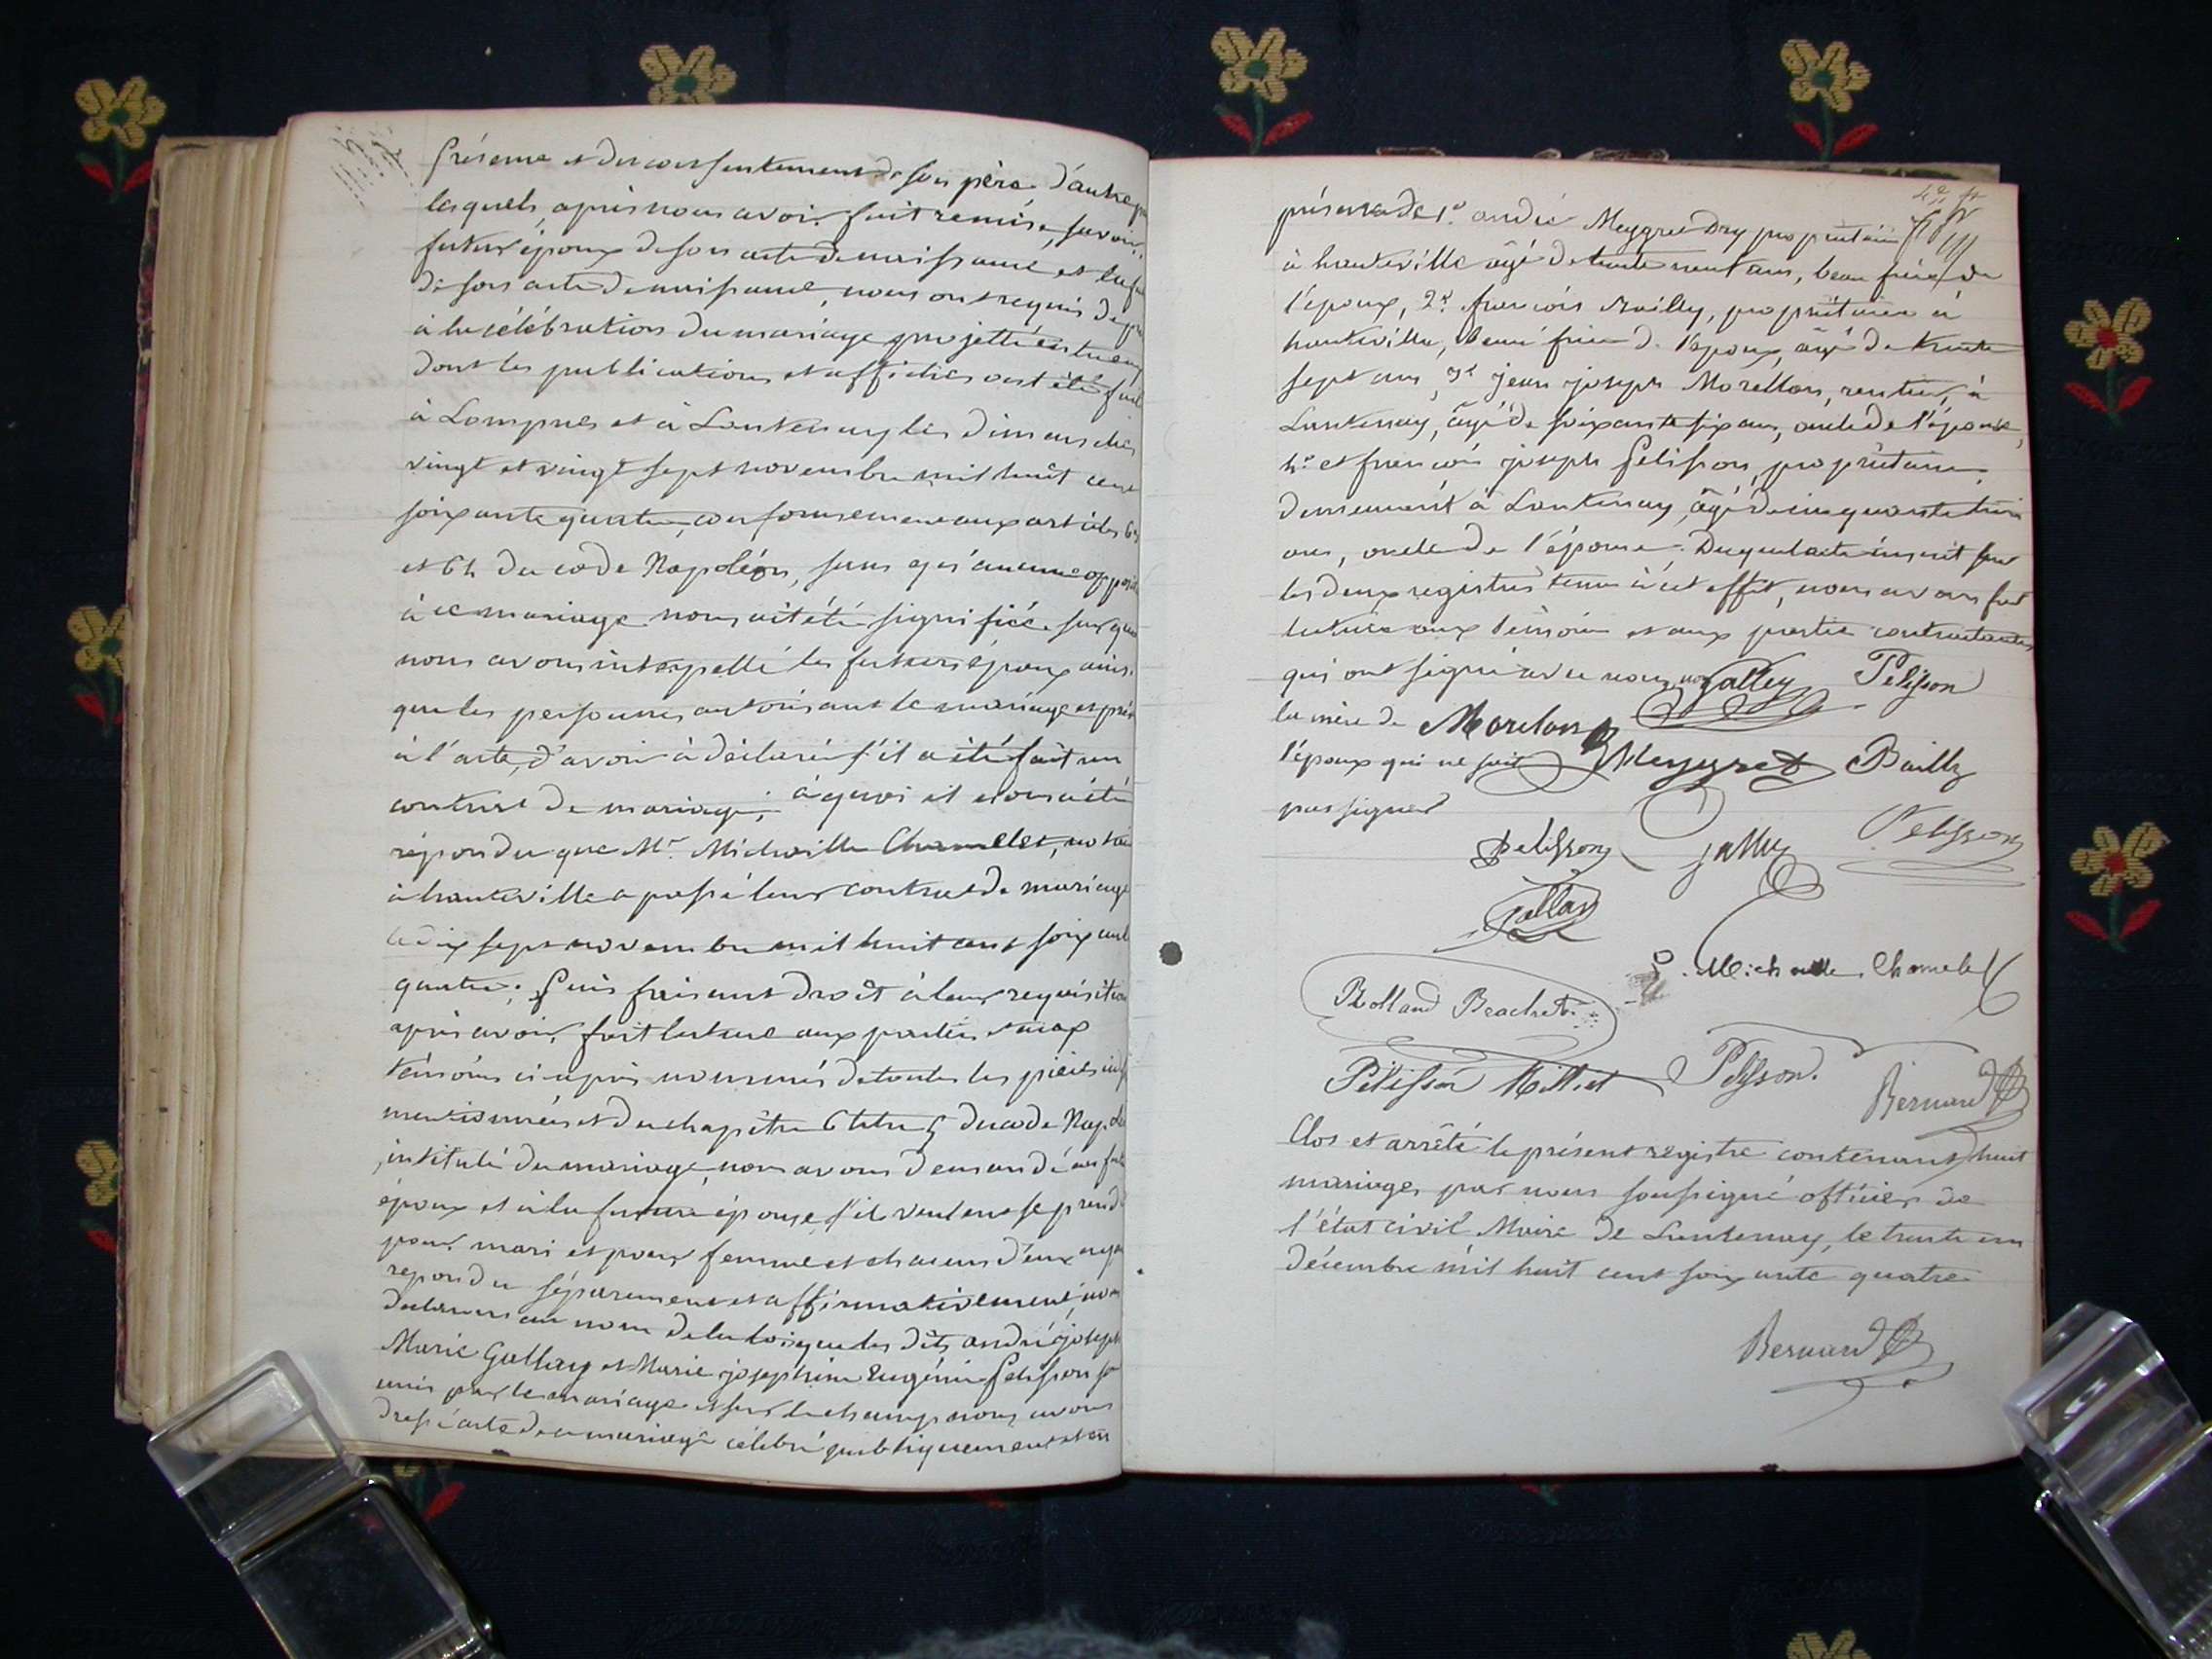 présence et du consentement de son père d'autre
lesquels, après nous avoir fait remise, savoir
futur époux de son acte de naissance et la
de son acte de naissance, nous ont requis de
à la célébration du mariage projetté entre eux
dont les publications et affiches ont été
à Lompnes et à Lantenay les dimanches
vingt et vingt sept novembre mil huit cent
soixante quatre, conformement aux articles 63
et 64 du code Napoléon, sans qu'aucune
à ce mariage nous ait été signifiée. sur quoi
nous avons interpellé les futurs époux ainsi
que les personnes autorisant le mariage et
à l'acte, d'avoir à déclarer s'il a été fait un
contrat de mariage; à quoi il nous a été
répondu que Mr. Michaille Chamelet,
à hauteville a passé leur contrat de mariage
le dix sept novembre mil huit cent soixante
quatre; Puis faisant droit à leur requisition
après avoir fait lecture aux parties et aux
témoins ci après nommés de toutes les pièces
mentionnées et du chapitre 6 titre 5 du code
intitulé du mariage, nous avons demandé au
époux et à la future épouse s'il veulent se
pour mari et pour femme et chacun d'eux
repondu séparement et affirmativement,
declarons au nom de la loi que les dits andré joseph
Marie Gallay et Marie josephine Eugénie Pelisson
unis par le mariage et sur le champ nous avons
dressé acte de ce mariage célébré publiquement et en
présence de 1º andré Meygret Dry propriétaire
à hauteville âgé de trente neuf ans, beau frère de
l'époux, 2º françois Bailly, propriétaire à
hauteville, beau frère de l'époux, âgé de trente
sept ans, 3º jean joseph Morellon, rentier, à
Lantenay, âgé de soixante six ans, oncle de l'épouse,
4º et françois joseph Pelisson, propriétaire
demeurant à Lantenay, âgé de cinquante trois
ans, oncle de l'épouse. Duquel acte inscrit sur
les deux registres tenu à cet effet, nous avons fait
lecture aux témoins et aux parties contractantes
qui ont signé avec nous, non Galley Pelisson
la mère de Morelon
l'époux qui ne sait Meygret Bailly
pas signer
Pelisson Pelisson
Gallay
Michaille Chamelet
Rolland Brachet
Pélisson Millet Pelisson.
Bernard
Clos et arrêté le présent registre contenant huit
mariages par nous soussigné officier de
l'état civil Maire de Lantenay, le trente un
décembre mil huit cent soixante quatre
Bernard